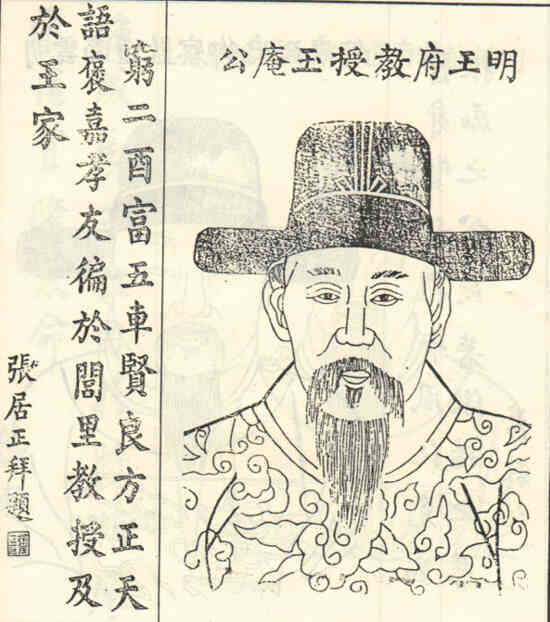 明王府教授玉庵公
窮二酉富五車賢良方正天
語褒嘉孝友徧於閭里教授及
於王家
張居正拜題